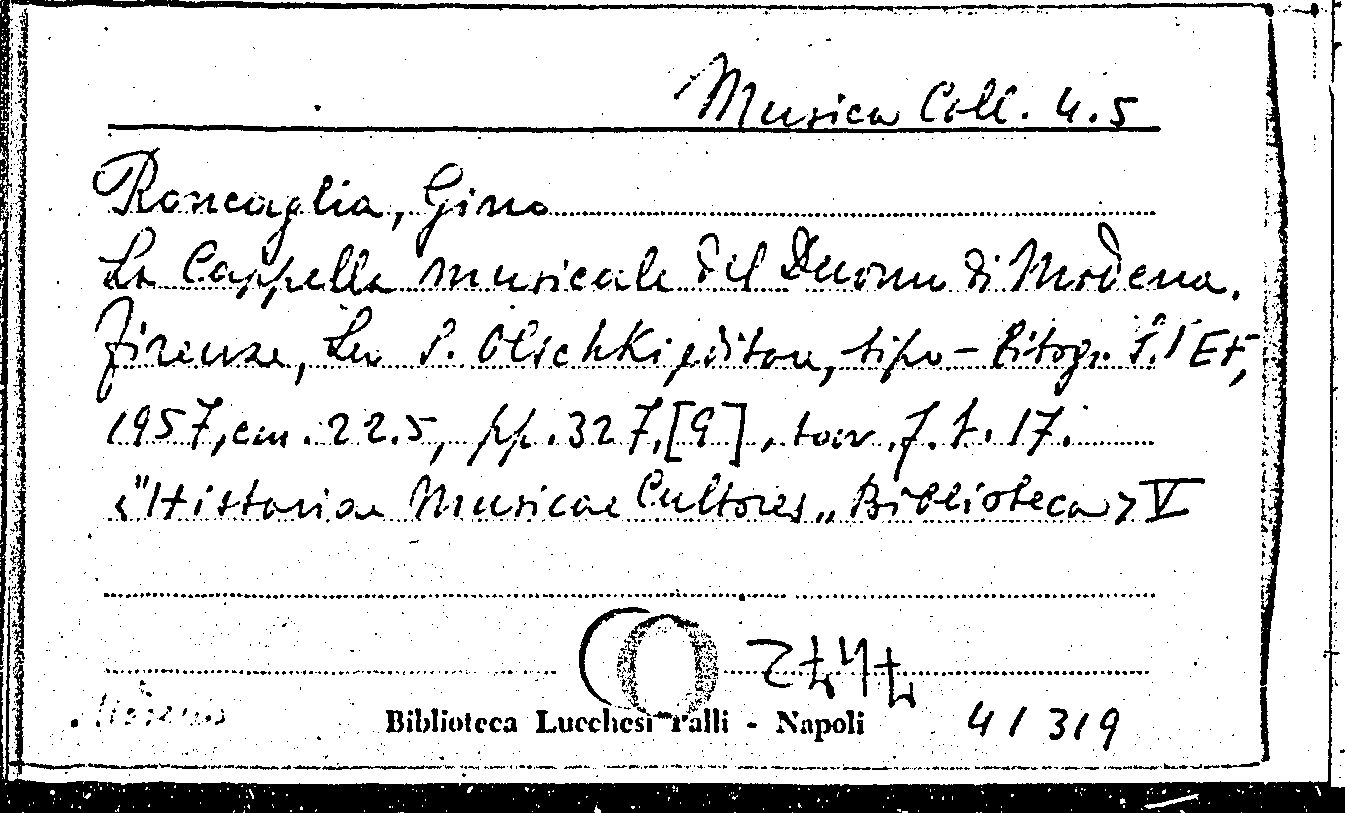 Musica Coll. 4.5
Roncaglia, Gino
La Cappella musicale del Duomo di Modena.
Firenze, Leo S. Olschki editore, tipo-litogr. S.T.E.F,
1957, cm. 22.5, pp. 327, [9], tav. f. t. 17.
<"Historiae Musicae Cultores„ Biblioteca> V
Biblioteca Lucchesi Palli - Napoli
41319